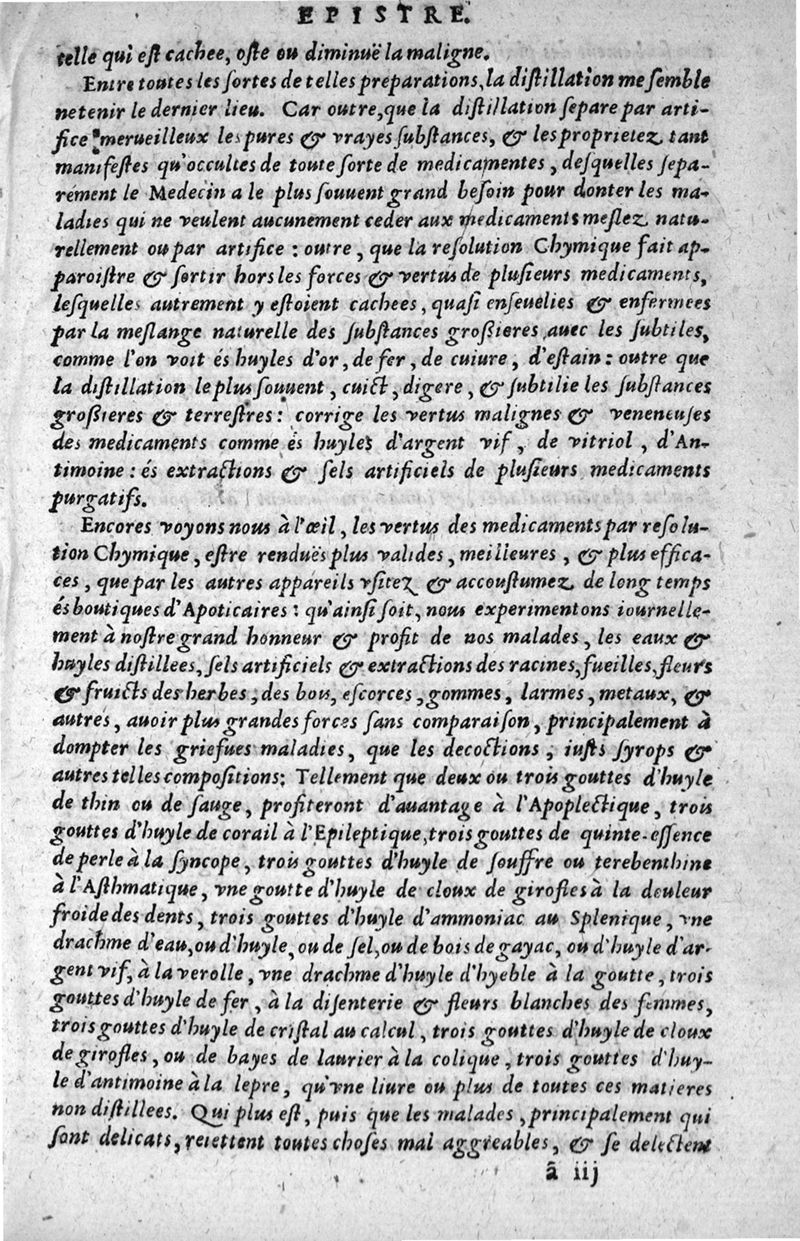 EPISTRE.
telle qui eſt cachee, oſte ou diminuë la maligne.
Entre toutes les ſortes de telles preparations, la diſtillation me ſemble
ne tenir le dernier lieu. Car outre, que la diſtillation ſepare par arti-
fice merueilleux les pures & vrayes ſubſtances, & les proprietez tant
manifeſtes qu'occultes de toute ſorte de medicamentes, deſquelles ſepa-
rément le Medecin a le plus ſouuent grand beſoin pour donter les ma-
ladies qui ne veulent aucunement ceder aux medicaments meſlez natu-
rellement ou par artifice : outre, que la reſolution Chymique fait ap-
paroiſtre & ſortir hors les forces & vertus de pluſieurs medicaments,
leſquelles autrement y eſtoient cachees, quaſi enſeuelies & enfermees
par la meſlange naturelle des ſubſtances groſſieres auec les ſubtiles,
comme l'on voit és huyles d'or, de fer, de cuiure, d'eſtain : outre que
la diſtillation le plus ſouuent, cuict, digere, & ſubtilie les ſubſtances
groſſieres & terreſtres : corrige les vertus malignes & veneneuſes
des medicaments comme és huyles d'argent vif, de vitriol, d'An-
timoine : és extractions & ſels artificiels de pluſieurs medicaments
purgatifs.
Encores voyons nous à l'œil, les vertus des medicaments par reſolu-
tion Chymique, eſtre renduës plus valides, meilleures, & plus effica-
ces, que par les autres appareils vſitez & accouſtumez de long temps
és boutiques d'Apoticaires : qu'ainſi ſoit, nous experimentons iournelle-
ment à noſtre grand honneur & profit de nos malades, les eaux &
huyles diſtillees, ſels artificiels & extractions des racines, fueilles, fleurs
& fruicts des herbes, des bois, eſcorces, gommes, larmes, metaux, &
autres, auoir plus grandes forces ſans comparaiſon, principalement à
dompter les griefues maladies, que les decoctions, iuſts ſyrops &
autres telles compoſitions: Tellement que deux ou trois gouttes d'huyle
de thin ou de ſauge, profiteront d'auantage à l'Apoplectique, trois
gouttes d'huyle de corail à l'Epileptique, trois gouttes de quinte-eſſence
de perle à la ſyncope, trois gouttes d'huyle de ſouffre ou terebenthine
à l'Aſthmatique, vne goutte d'huyle de cloux de girofles à la douleur
froide des dents, trois gouttes d'huyle d'ammoniac au Splenique, vne
drachme d'eau, ou d'huyle, ou de ſel, ou de bois de gayac, ou d'huyle d'ar-
gent vif, à la verolle, vne drachme d'huyle d'hyeble à la goutte, trois
gouttes d'huyle de fer, à la diſenterie & fleurs blanches des femmes,
trois gouttes d'huyle de criſtal au calcul, trois gouttes d'huyle de cloux
de girofles, ou de bayes de laurier à la colique, trois gouttes d'huy-
le d'antimoine à la lepre, qu'vne liure ou plus de toutes ces matieres
non diſtillees. Qui plus eſt, puis que les malades, principalement qui
ſont delicats, reiettent toutes choſes mal aggreables, & ſe delectent
ã iij